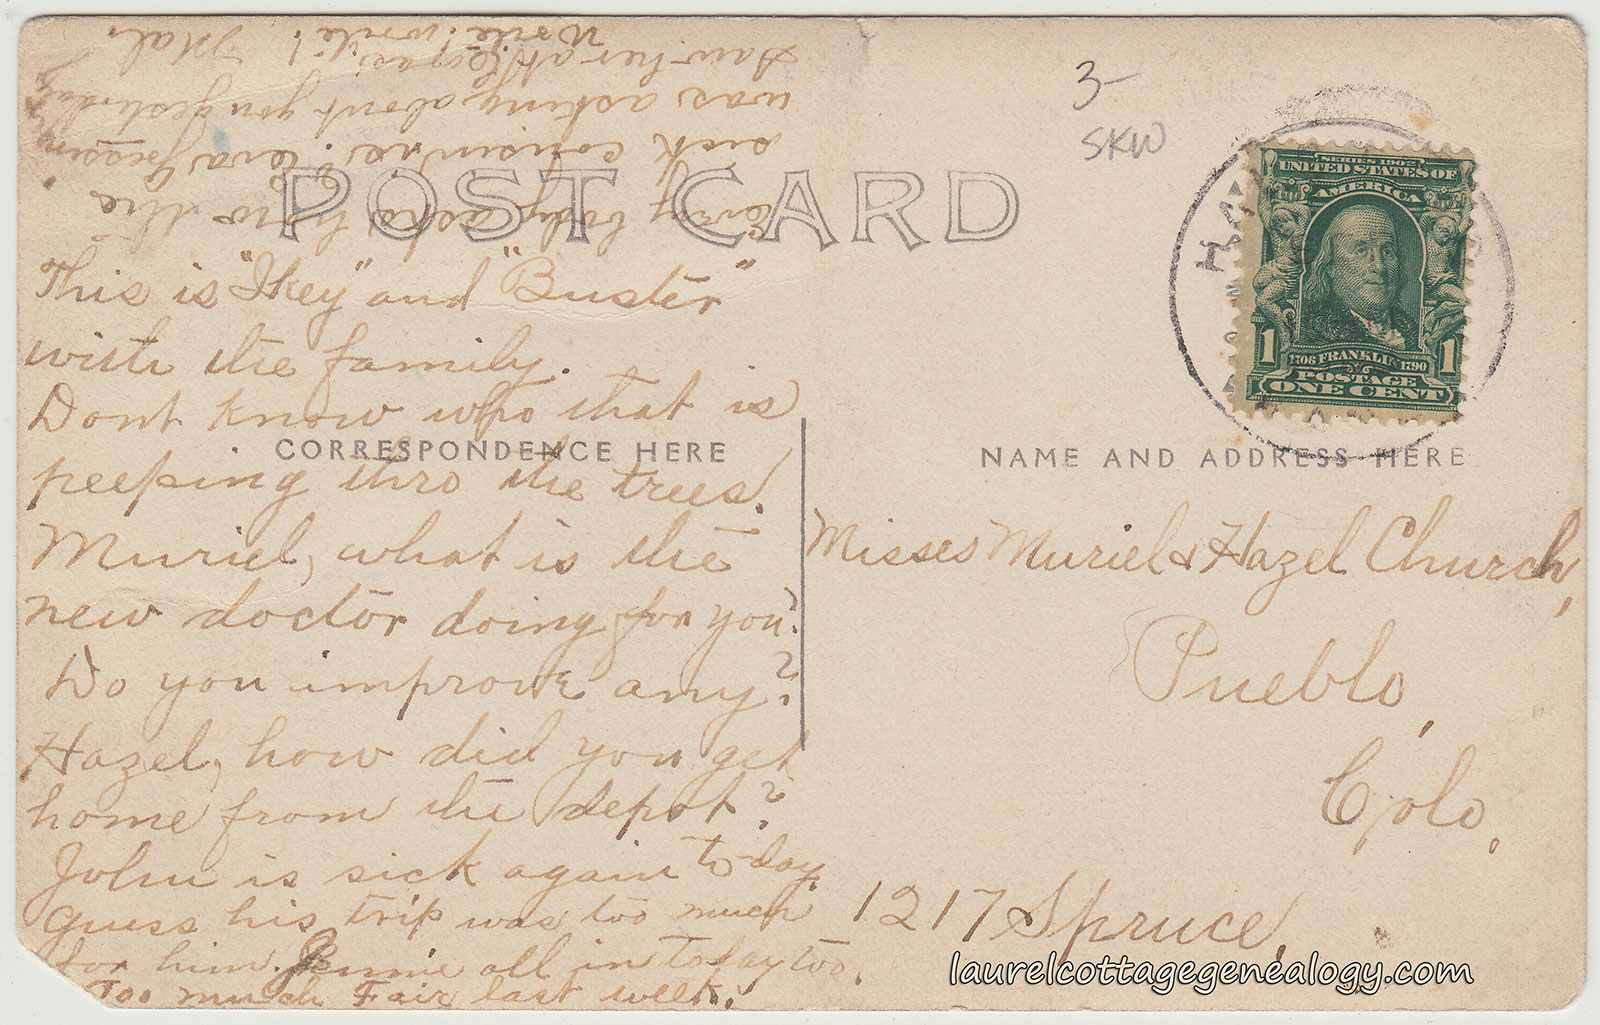 POST CARD
This is "Ikey" and "Buster"
with the family.
Dont know who that is
CORRESPONDENCE HERE
peeping thro the trees.
Muriel, what is the
new doctor doing for you?
Do you improve any?
Hazel, how did you get
home from the depot?
John is sick again to-day.
Guess his trip was too much
for him. Jennie all in today too.
Too much Fair last week.
Every body asks how the
sick cousin is.
was asking about you yesterday
Saw her at
Write! Write! Mal.
3-
SKW
HA
SERIES 1902
UNITED STATES OF
AMERICA
1 1
1706 FRANKLIN 1790
POSTAGE
ONE CENT
NAME AND ADDRESS HERE
Misses Muriel & Hazel Church,
Pueblo,
Colo,
1217 Spruce,
laurelcottagegenealogy.com